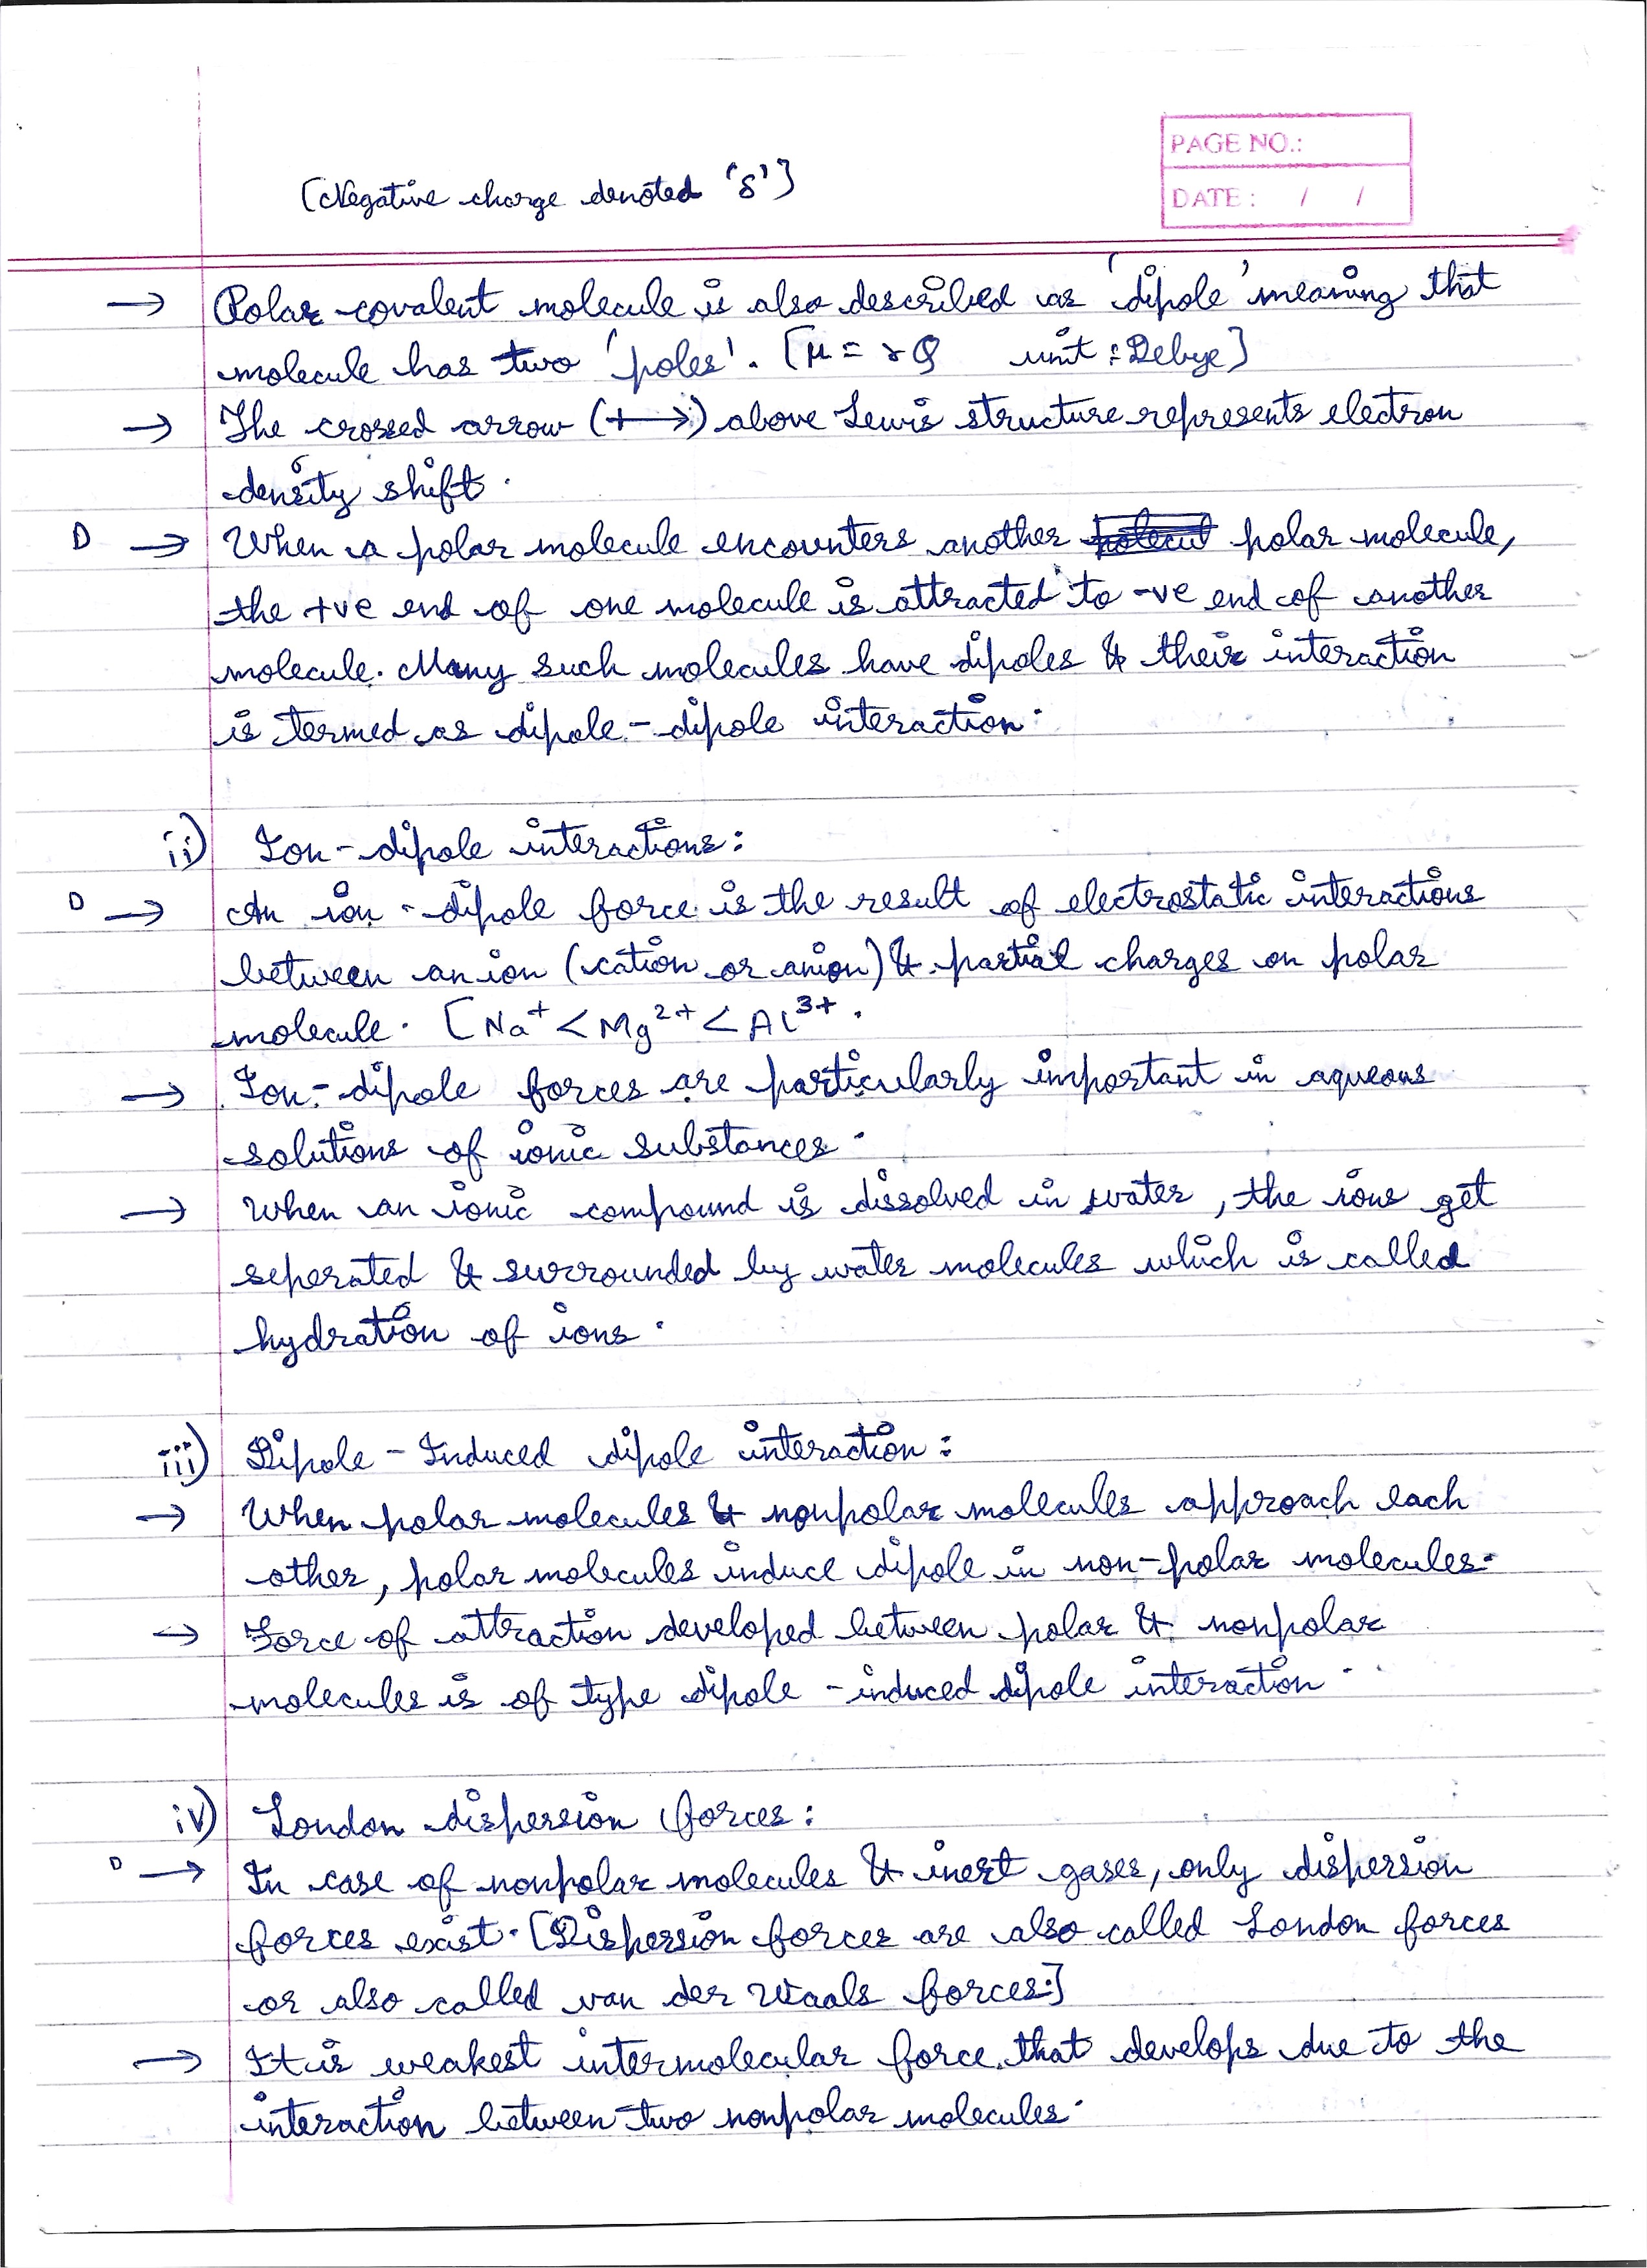 PAGE NO.:
DATE: / /
[Negative charge denoted 'δ']
→ Polar covalent molecule is also described as 'dipole' meaning that
molecule has two 'poles'. [μ = rQ unit : Debye]
→ The crossed arrow (+→) above Lewis structure represents electron
density shift.
D → When a polar molecule encounters another polar molecule,
the +ve end of one molecule is attracted to -ve end of another
molecule. Many such molecules have dipoles & their interaction
is termed as dipole-dipole interaction.
ii) Ion-dipole interactions:
D → An ion-dipole force is the result of electrostatic interactions
between an ion (cation or anion) & partial charges on polar
molecule. [Na⁺ < Mg²⁺ < Al³⁺.
→ Ion-dipole forces are particularly important in aqueous
solutions of ionic substances.
→ When an ionic compound is dissolved in water, the ions get
seperated & surrounded by water molecules which is called
hydration of ions.
iii) Dipole-Induced dipole interaction:
→ When polar molecules & nonpolar molecules approach each
other, polar molecules induce dipole in non-polar molecules.
→ Force of attraction developed between polar & nonpolar
molecules is of type dipole-induced dipole interaction.
iv) London dispersion forces:
D → In case of nonpolar molecules & inert gases, only dispersion
forces exist. [Dispersion forces are also called London forces
or also called van der Waals forces.]
→ It is weakest intermolecular force that develops due to the
interaction between two nonpolar molecules.